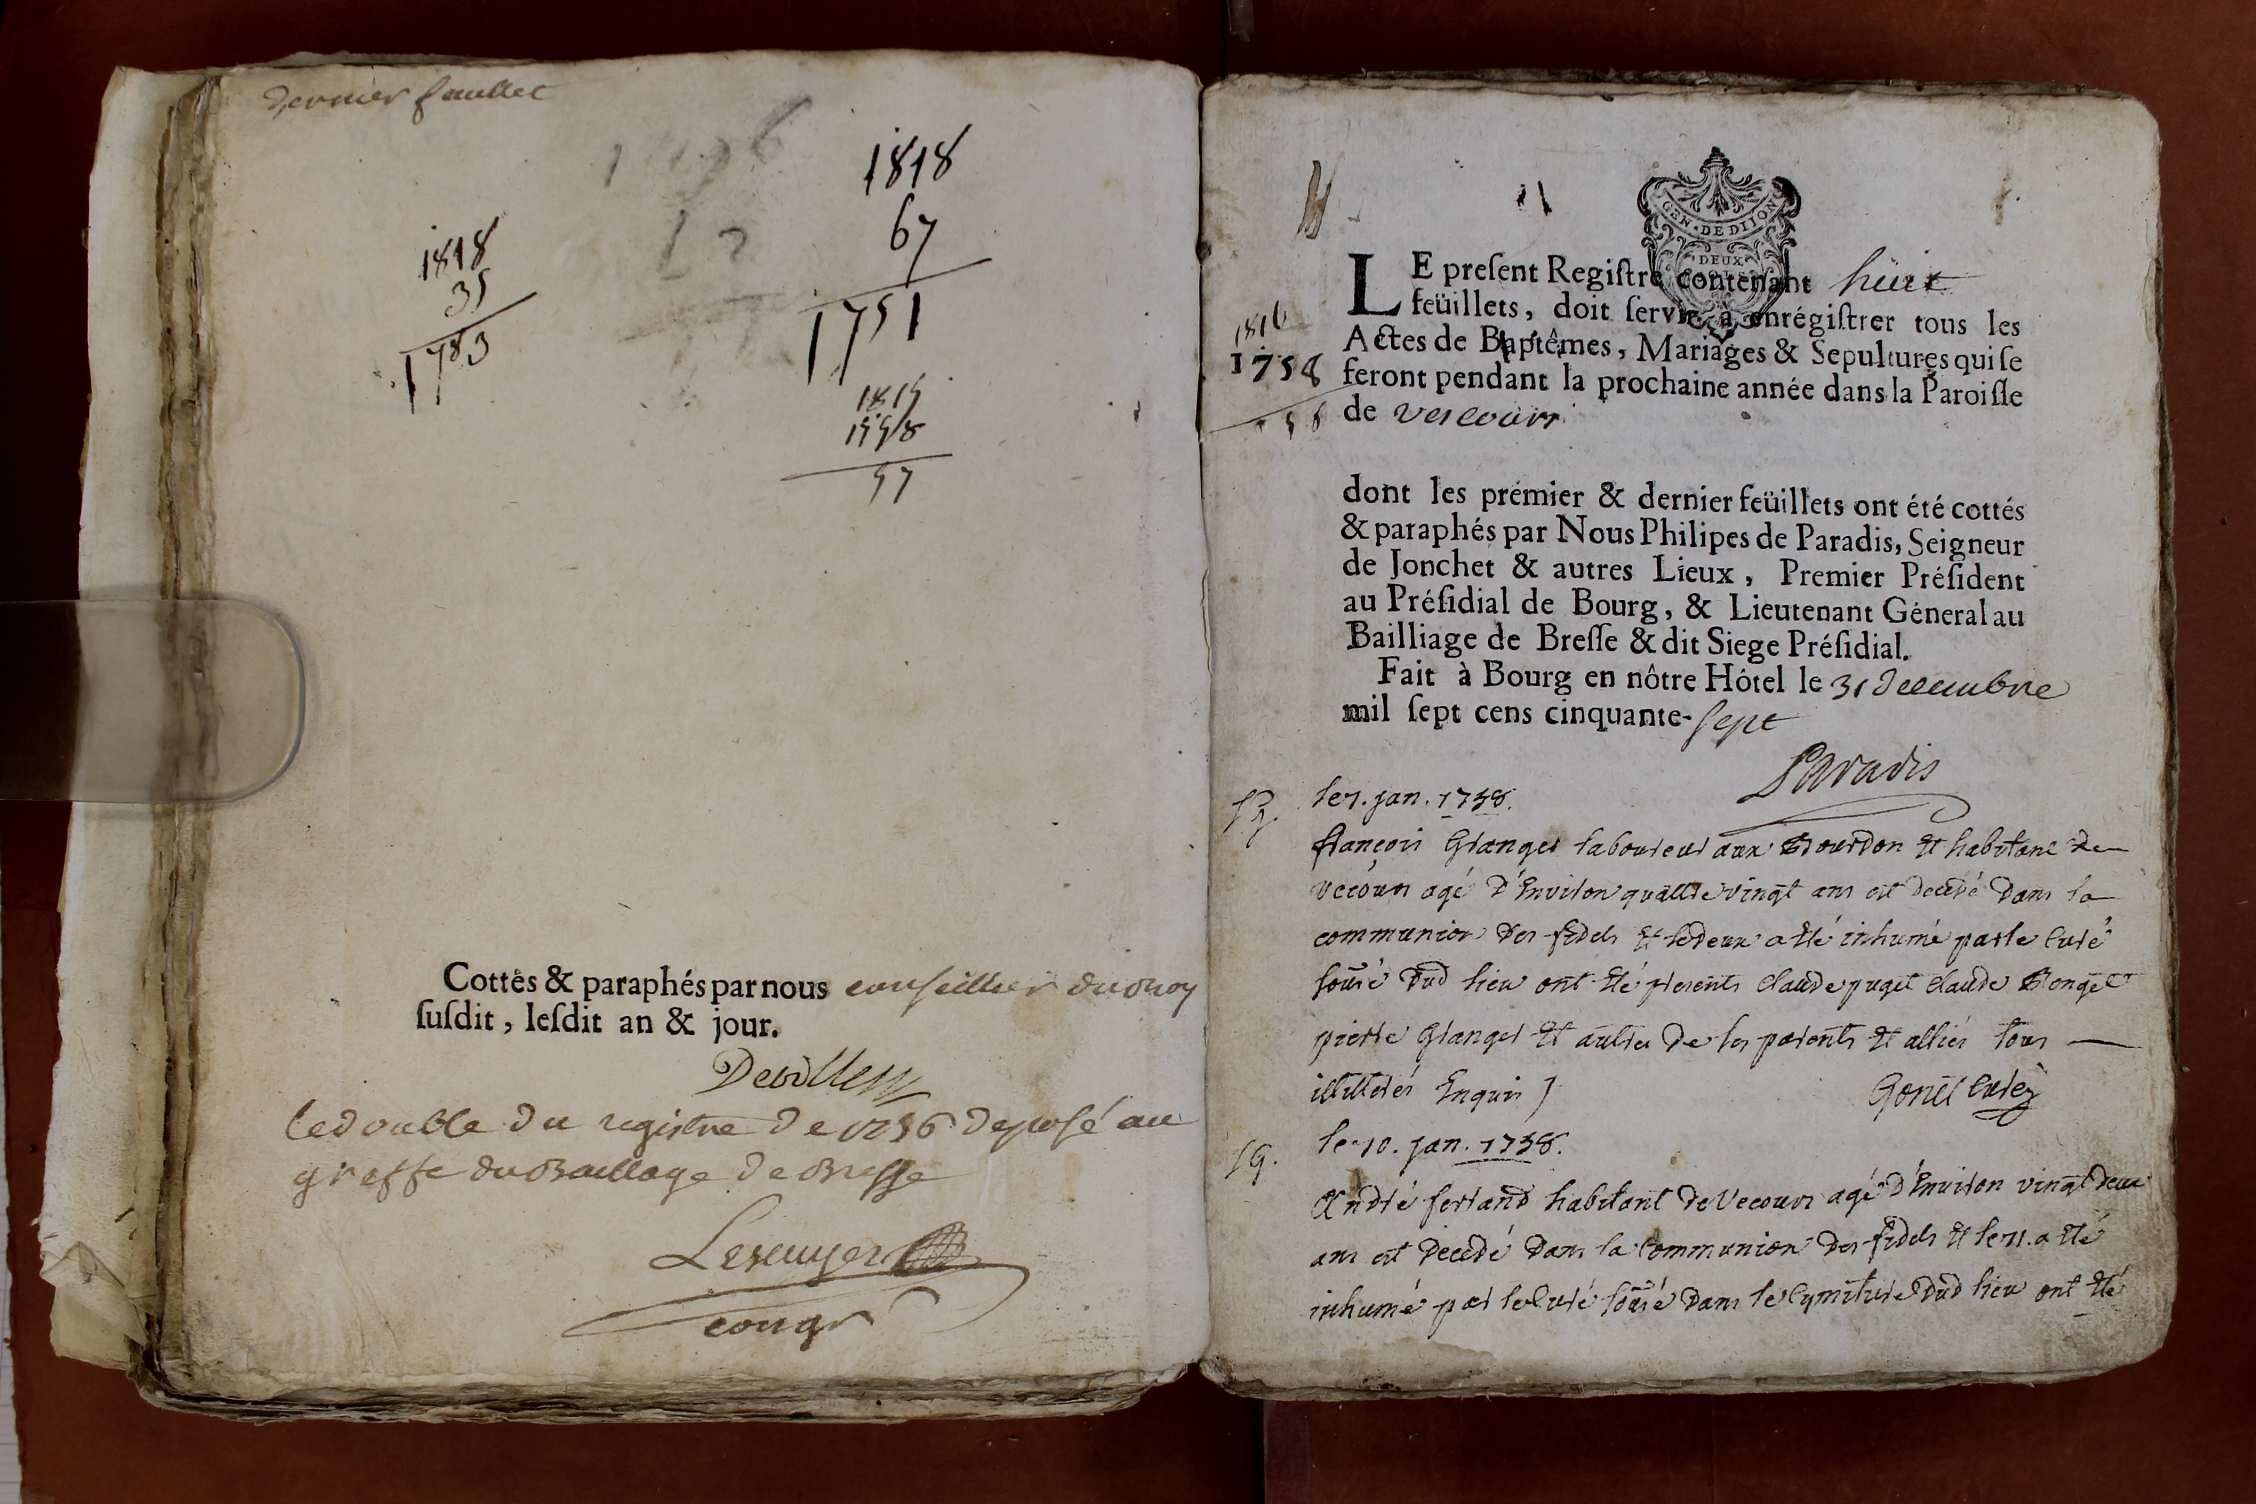 Dernier feuillet
1818
35
1783
1818
67
1751
1815
1758
57
Cottés & paraphés par nous conseiller du Roy
susdit, lesdit an & jour.
le double du registre de 1756 deposé au
greffe du Baillage de Bresse
GEN. DE DIJON
DEUX
LE present Registre contenant huit
feüillets, doit servir à enrégistrer tous les
Actes de Baptêmes, Mariages & Sepultures qui se
feront pendant la prochaine année dans la Paroisse
de Vescours
1816
1758
58
dont les premier & dernier feüillets ont été cottés
& paraphés par Nous Philipes de Paradis, Seigneur
de Jonchet & autres Lieux, Premier Président
au Présidial de Bourg, & Lieutenant Géneral au
Bailliage de Bresse & dit Siege Présidial.
Fait à Bourg en nôtre Hôtel le 31 decembre
mil sept cens cinquante-sept
Paradis
le 1. jan. 1758.
françois Granger laboureur aux Bourdon et habitant de
vecours agé d'Environ quattre vingt ans est decedé dans la
communion des fidels et le deux a Eté inhumé par le Curé
souss̄é dud lieu ont Eté presents Claude puget Claude Ronget
pierre Granger et aultres de ses parents et alliés tous
illitterés Enquis
Gonet Curé
le 10. jan. 1758.
André ferrand habitant de Vecours agé d'Environ vingt deux
ans est decedé dans la Communion des fidels et le 11. a Eté
inhumé par le Curé souss̄é dans le Cymitiere dud lieu ont Eté